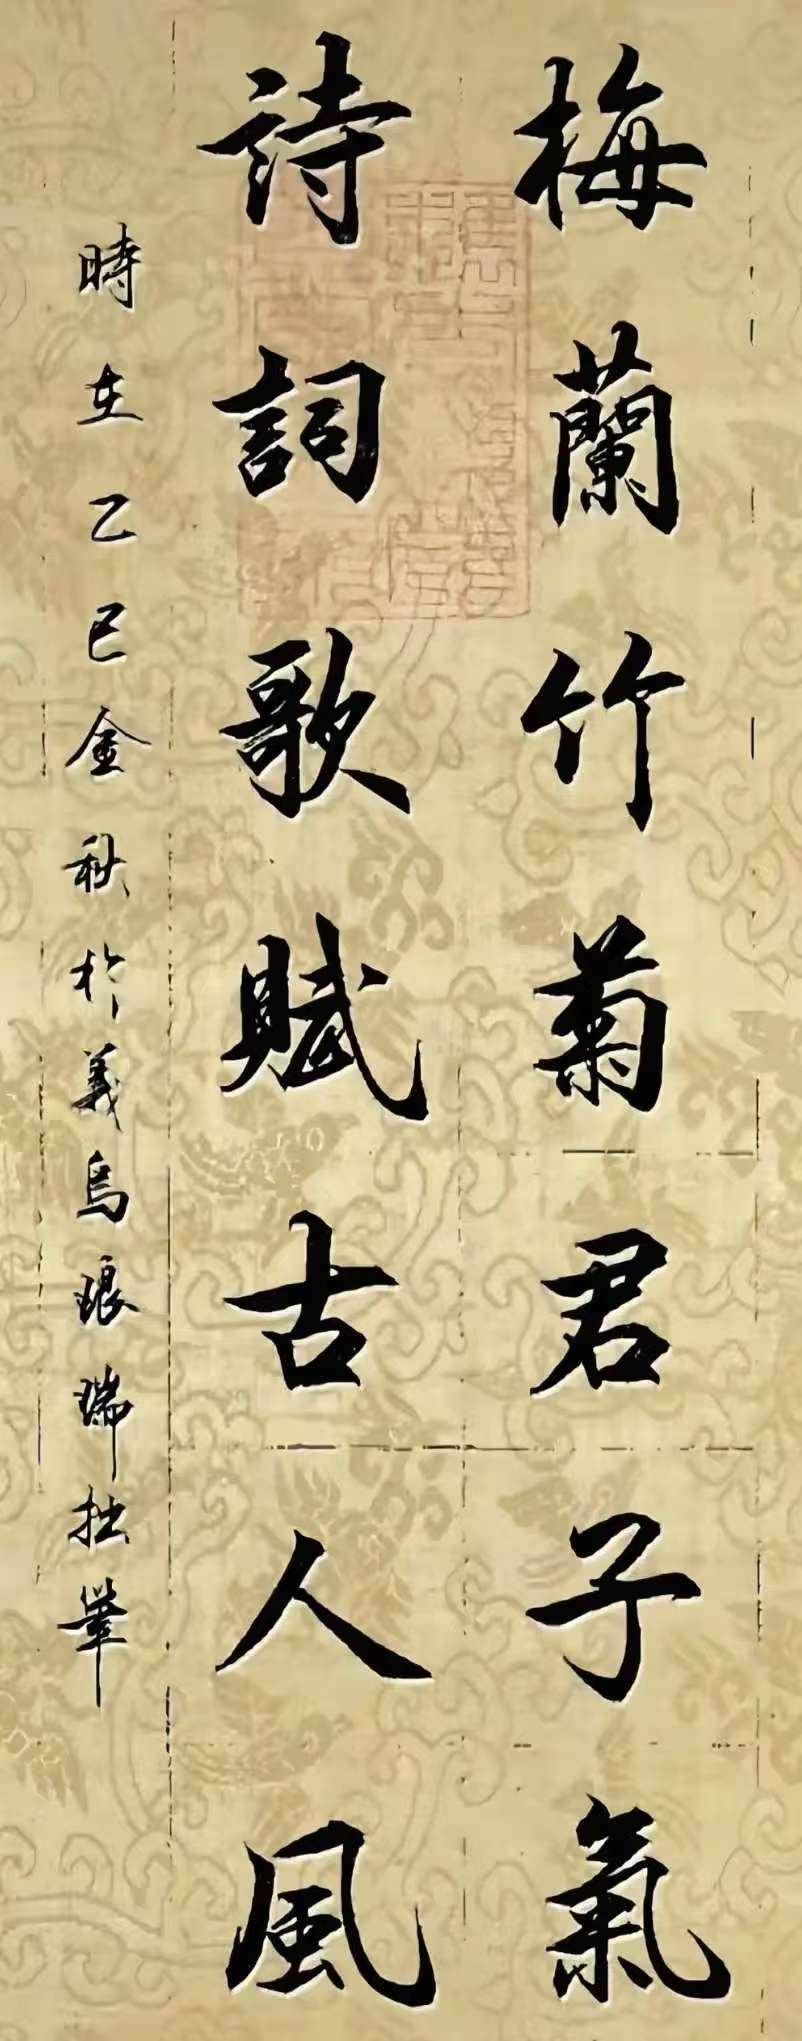 梅蘭竹菊君子氣
詩詞歌賦古人風
時在乙巳金秋於義烏琅瑞拙筆